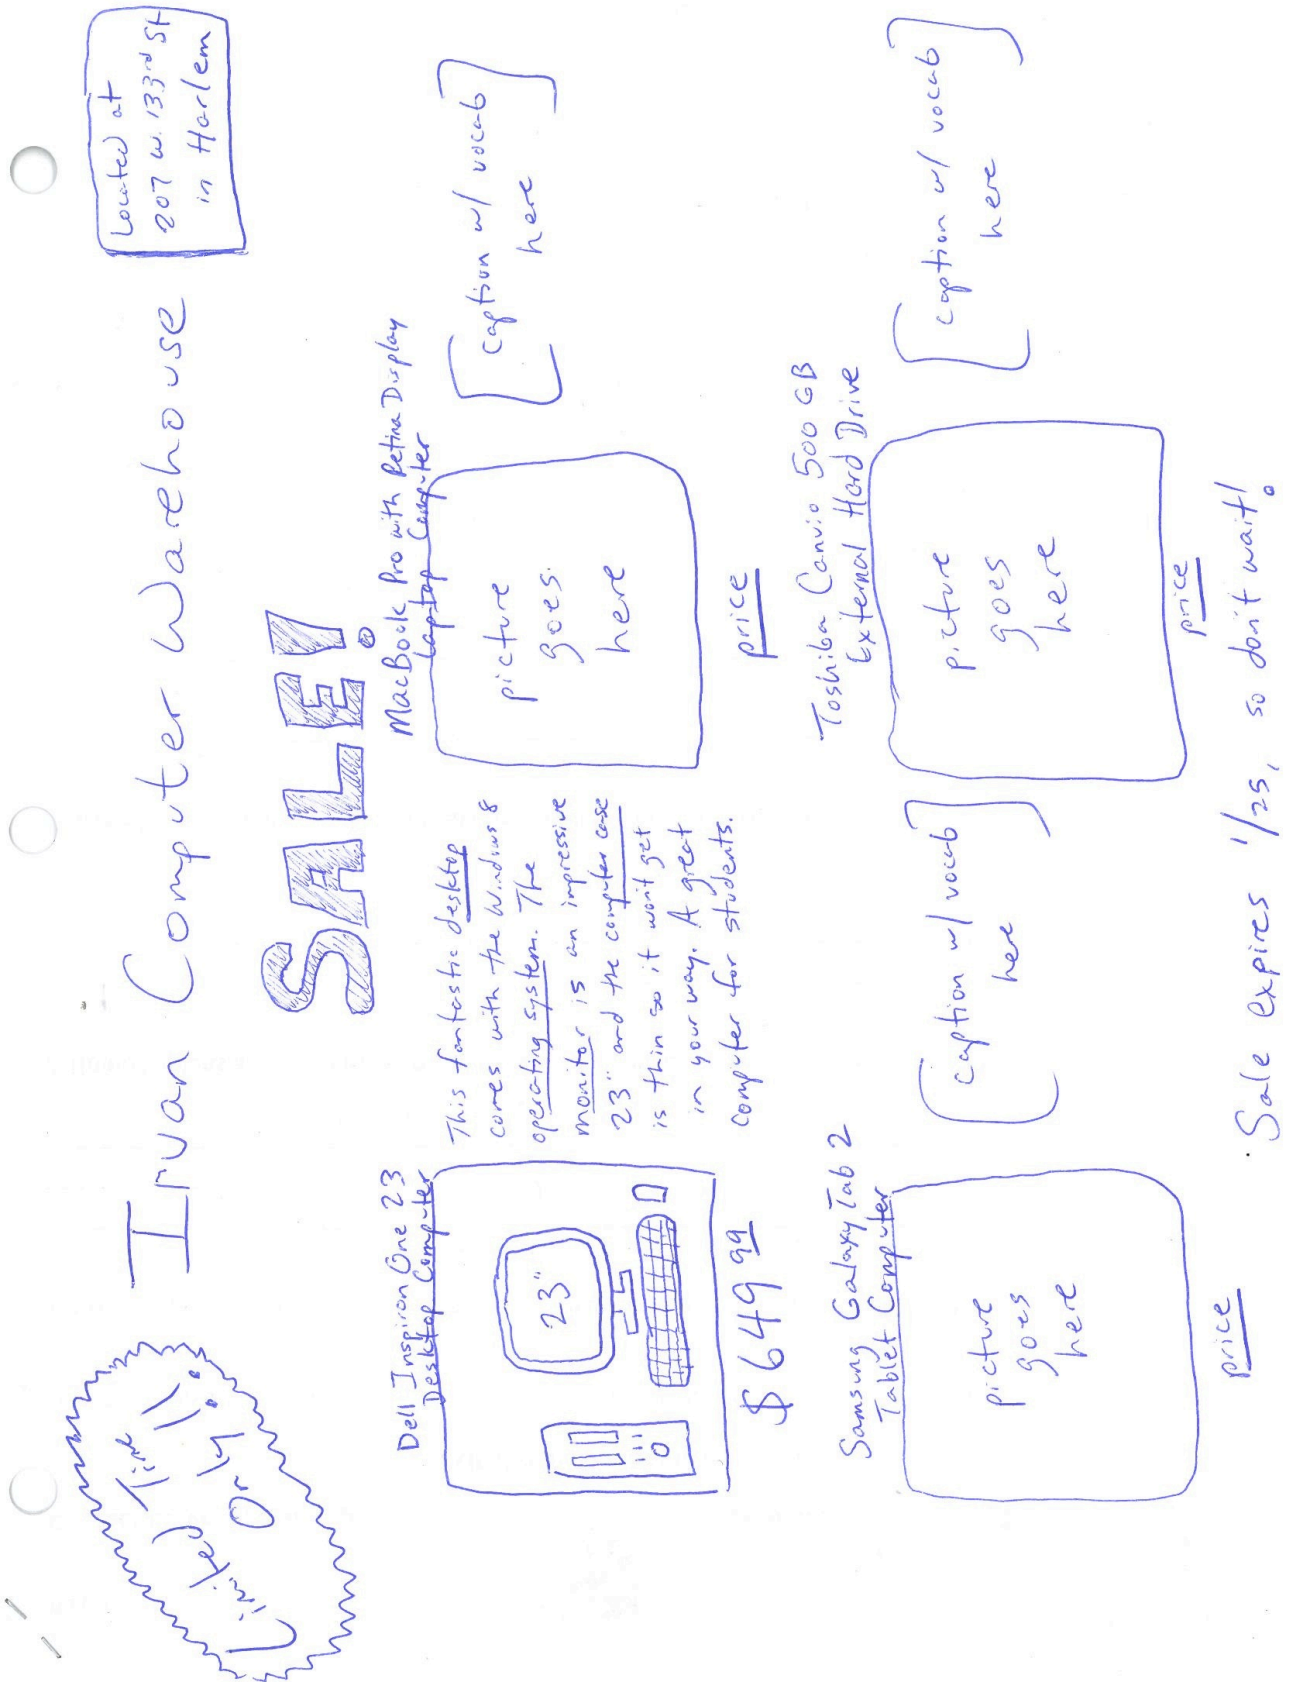 Limited Time
Only!!
Irvan Computer Warehouse
Located at
207 W. 133rd St
in Harlem
SALE!
Dell Inspiron One 23
Desktop Computer
23"
$649 99
This fantastic desktop
comes with the Windows 8
operating system. The
monitor is an impressive
23" and the computer case
is thin so it won't get
in your way. A great
computer for students.
MacBook Pro with Retina Display
Laptop Computer
picture
goes
here
price
[caption w/ vocab
here]
Samsung Galaxy Tab 2
Tablet Computer
picture
goes
here
price
[caption w/ vocab
here]
Toshiba Canvio 500 GB
External Hard Drive
picture
goes
here
price
[caption w/ vocab
here]
Sale expires 1/25, so don't wait!